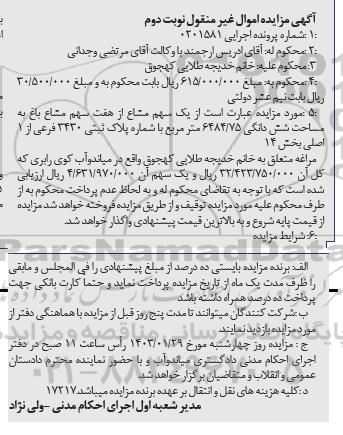 آگهی مزایده اموال غیر منقول نوبت دوم
۱: شماره پرونده اجرایی ۰۲۰۱۵۸۱
۲: محکوم له: آقای ادریس ارجمند با وکالت آقای مرتضی وجدانی
۳: محکوم علیه: خانم خدیجه طلایی کهجوق
۴: محکوم به: مبلغ ۶۱۵/۰۰۰/۰۰۰ ریال بابت محکوم به و مبلغ ۳۰/۵۰۰/۰۰۰
ریال بابت نیم عشر دولتی
۵: مورد مزایده عبارت است از یک سهم مشاع از هفت سهم مشاع باغ به
مساحت شش دانگی ۶۴۸۴/۷۵ متر مربع با شماره پلاک ثبتی ۳۴۳۰ فرعی از ۱
اصلی بخش ۱۴
مراغه متعلق به خانم خدیجه طلایی کهجوق واقع در میاندوآب کوی رابری که
کل آن ۳۲/۴۲۳/۷۵۰/۰۰۰ ریال و یک سهم آن ۴/۶۳۱/۹۷۰/۰۰۰ ریال ارزیابی
شده است که با توجه به تقاضای محکوم له و به لحاظ عدم پرداخت محکوم به از
طرف محکوم علیه مورد مزایده توقیف و از طریق مزایده فروخته خواهد شد مزایده
از قیمت پایه شروع و به بالاترین قیمت پیشنهادی واگذار خواهد شد.
۶: شرایط مزایده
الف: برنده مزایده بایستی ده درصد از مبلغ پیشنهادی را فی المجلس و مابقی
را ظرف مدت یک ماه از تاریخ مزایده پرداخت نماید و حتما کارت بانکی جهت
پرداخت ده درصد همراه داشته باشد
ب: شرکت کنندگان میتوانند تا مدت پنج روز قبل از مزایده با هماهنگی دفتر از
مورد مزایده بازدید نمایند.
ج: مزایده روز چهارشنبه مورخ ۱۴۰۳/۰۱/۲۹ رأس ساعت ۱۱ صبح در دفتر
اجرای احکام مدنی دادگستری میاندوآب و با حضور نماینده محترم دادستان
عمومی و انقلاب و متقاضیان برگزار خواهد شد.
د: کلیه هزینه های نقل و انتقال بر عهده برنده مزایده میباشد. ۱۷۲۱۷
مدیر شعبه اول اجرای احکام مدنی - ولی نژاد